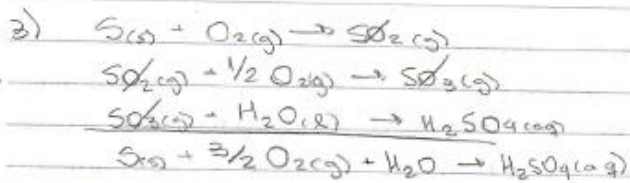 3) S(s) + O2(g) → SO2(g)
SO2(g) + 1/2 O2(g) → SO3(g)
SO3(g) + H2O(l) → H2SO4(aq)
S(s) + 3/2 O2(g) + H2O → H2SO4(aq)